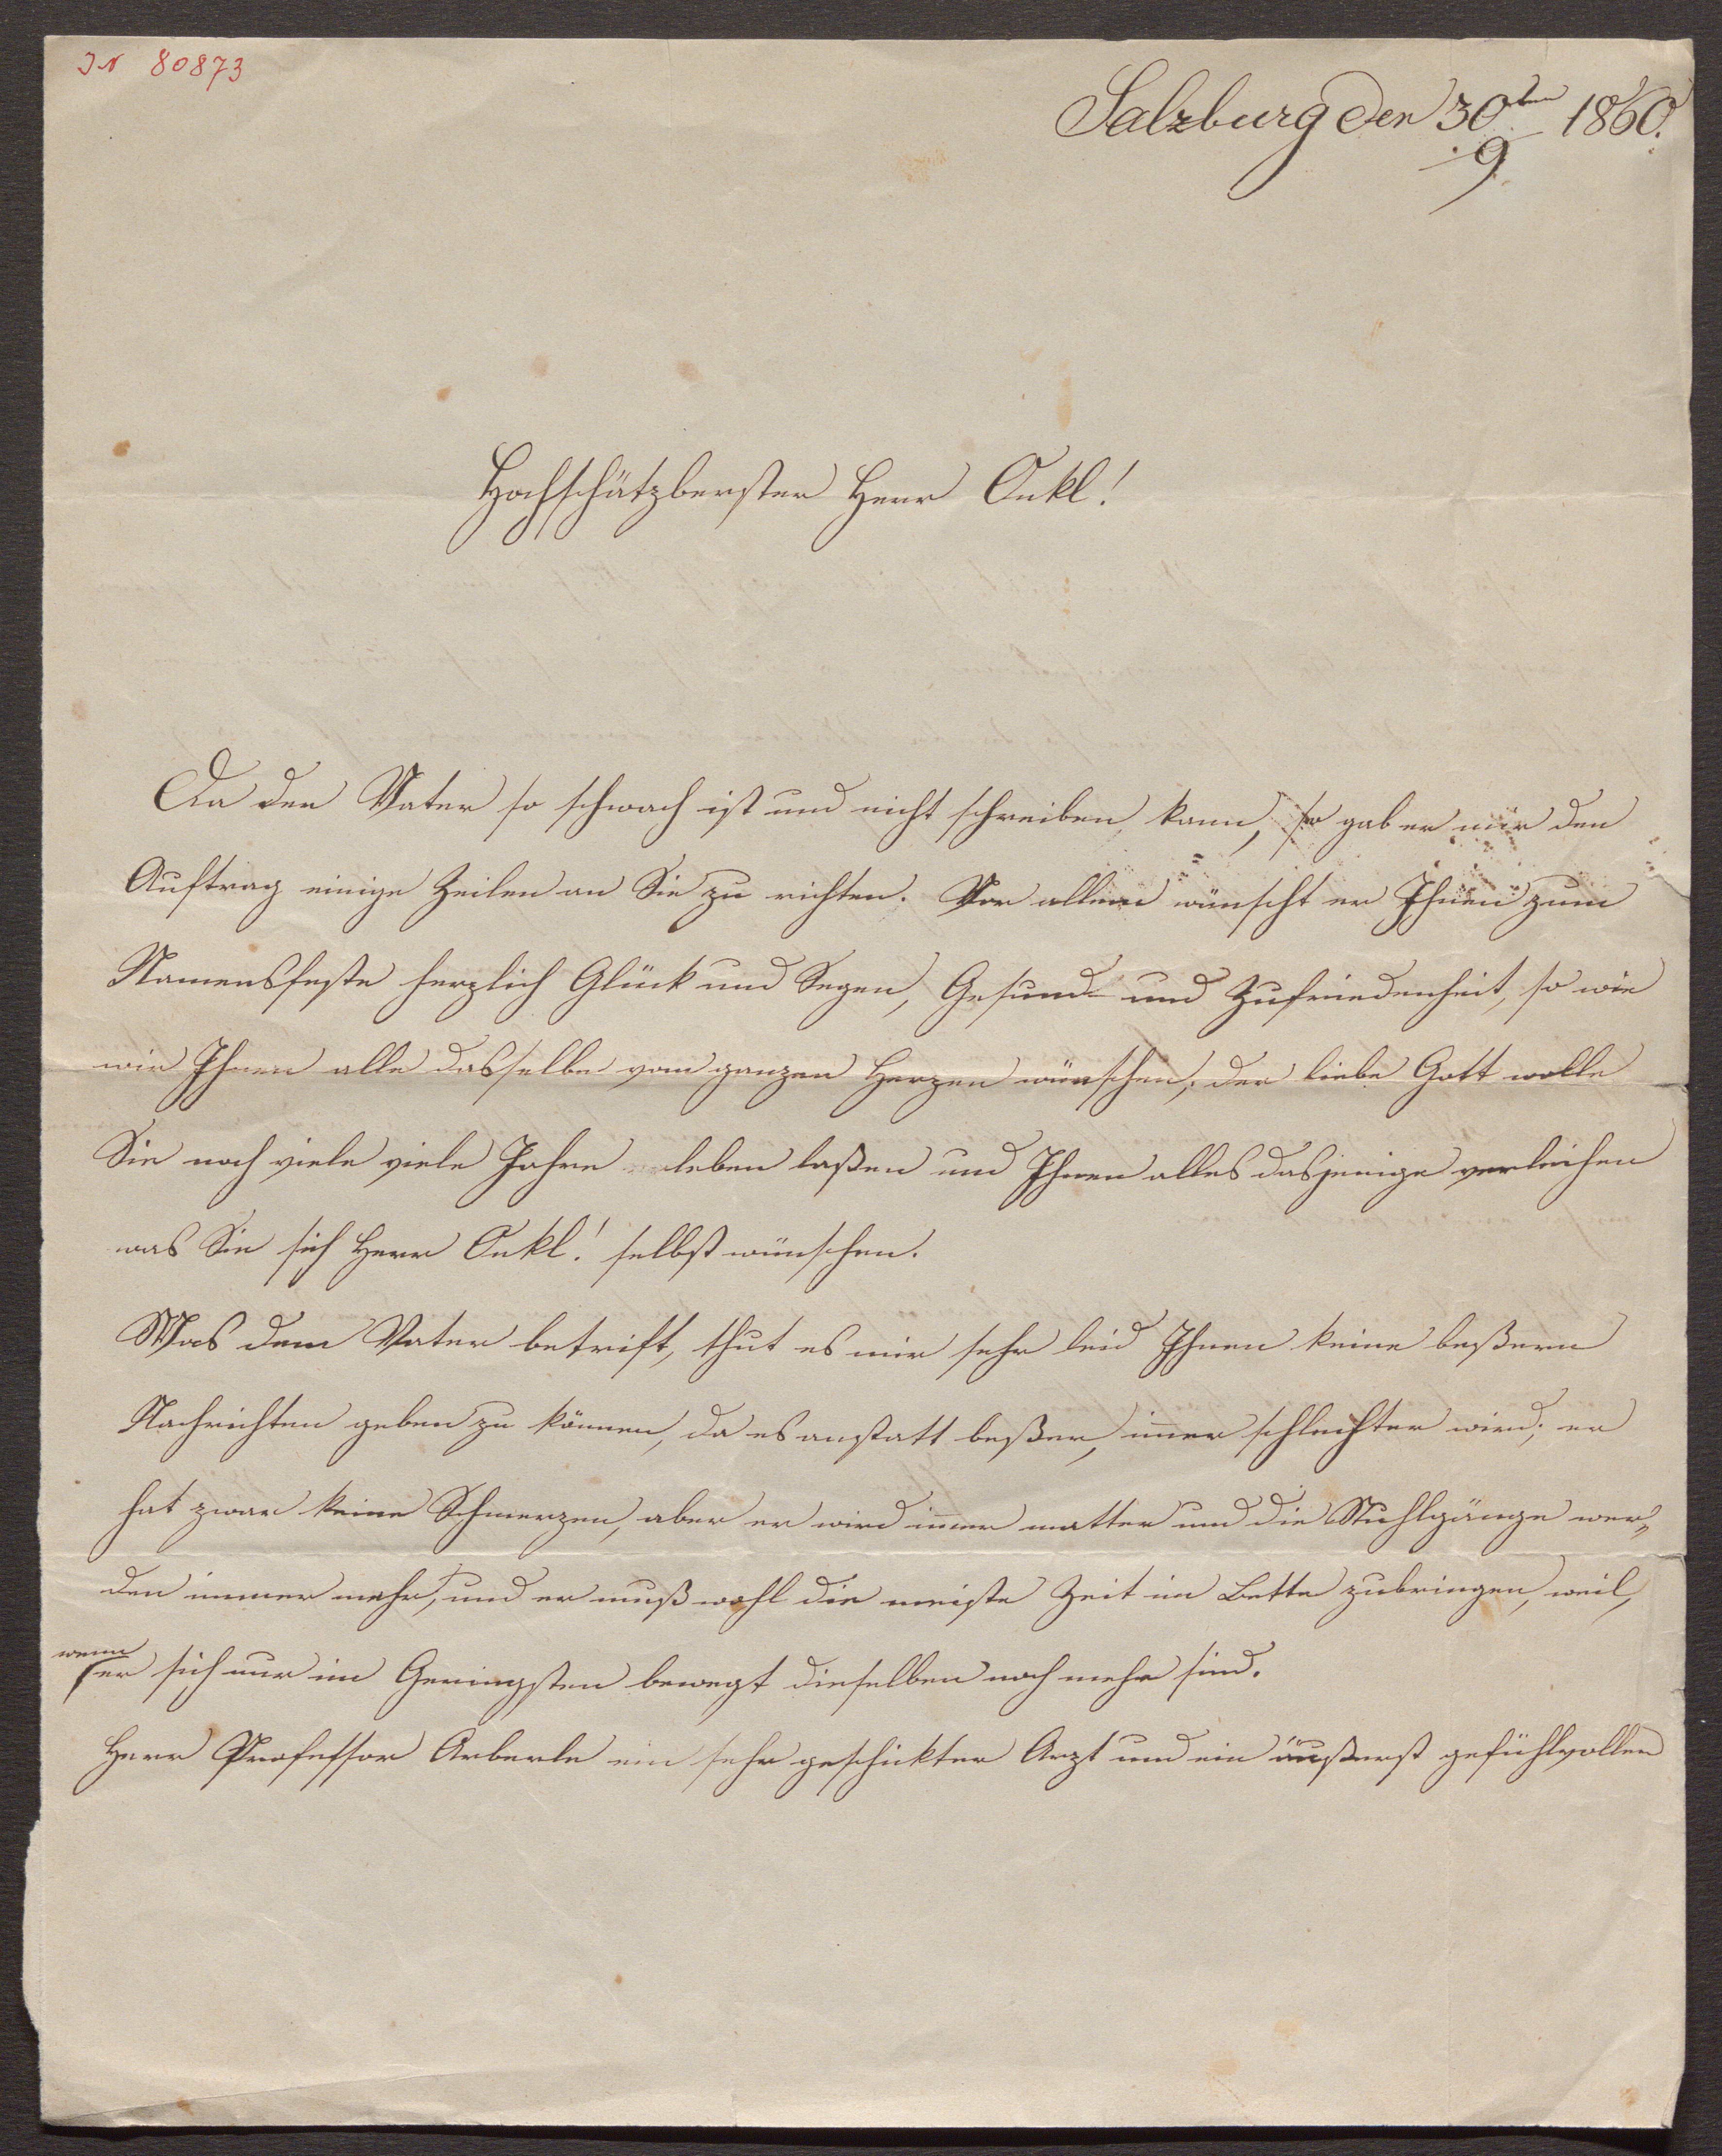 IN 80873
Salzburg den 30ten/9 1860.
Hochschätzberster Herr Onkl!
Da der Vater so schwach ist und nicht schreiben kann, so gab er mir den
Auftrag einige Zeilen an Sie zu richten. Vor allem wünscht er Ihnen zum
Namensfeste herzlich Glück und Segen, Gesund- und Zufriedenheit, so wie
wir Ihnen alle dasselbe vom ganzen Herzen wünschen; der liebe Gott wolle
Sie noch viele viele Jahre leben laßen und Ihnen alles dasjenige verleihen
was Sie sich Herr Onkl! selbst wünschen.
Was dem Vater betrift, thut es mir sehr leid Ihnen keine beßern
Nachrichten geben zu können, da es anstatt beßer, im̅er schlechter wird; er
hat zwar keine Schmerzen, aber er wird im̅er matter und die Stuhlgänge wer„
den immer mehr, und er muß wohl die meiste Zeit im Bette zubringen, weil,
wenn er sich nur im Geringsten bewegt dieselben noch mehr sind.
Herr Professor Arberle ein sehr geschickter Arzt und ein äußerst gefühlvoller